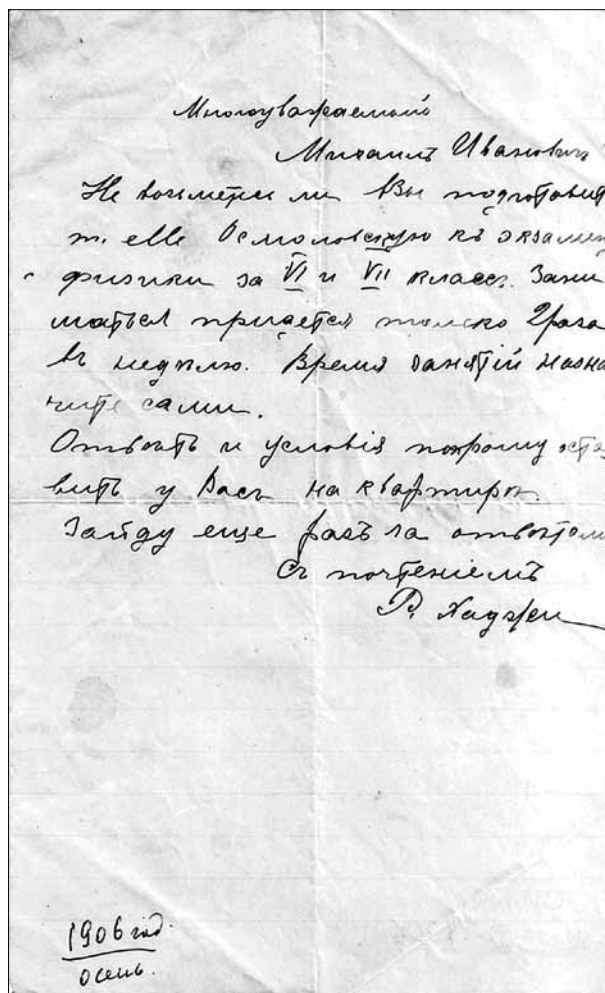 Многоуважаемый
Михаилъ Ивановичъ
Не возьметесь ли Вы подготовить
m. elle Осмоловскую къ экзамену
физики за VI и VII классъ. Зани
маться придется только 2 раза
въ неделю. Время занятій назна
чите сами.
Ответъ и условія попрошу оста
вить у Васъ на квартире.
Зайду еще разъ за ответомъ
Съ почтеніемъ
Р. Хаджи
1906 год.
осень.